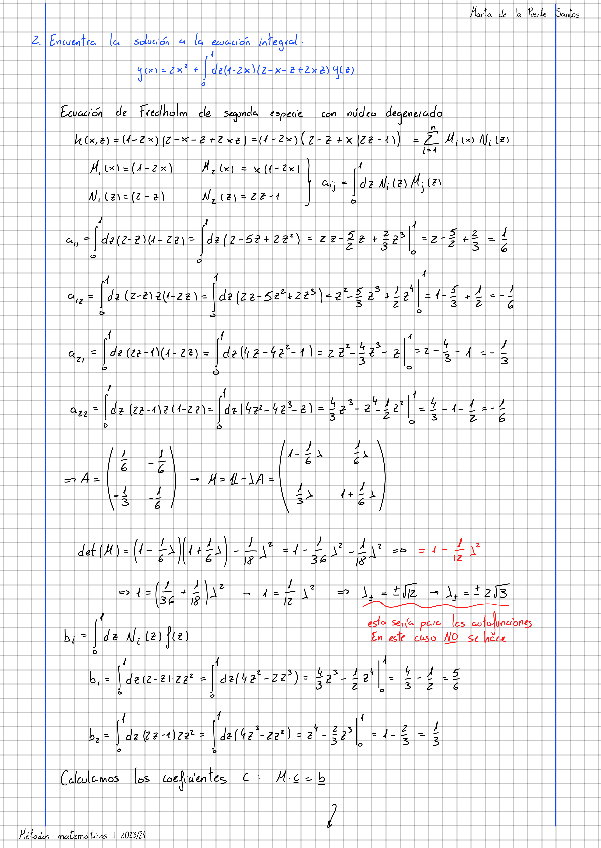 Marta de la Puente Santos
2. Encuentra la solución a la ecuación integral.
y(x) = 2x² + ∫₀¹ dz(1-2x)(2-x-z+2xz)y(z)
Ecuación de Fredholm de segunda especie con núcleo degenerado
k(x,z) = (1-2x)(2-x-z+2xz) = (1-2x)(2-z+x(2z-1)) = Σᵢ₌₁ⁿ Mᵢ(x) Nᵢ(z)
M₁(x) = (1-2x) M₂(x) = x(1-2x)
N₁(z) = (2-z) N₂(z) = 2z-1 } aᵢⱼ = ∫₀¹ dz Nᵢ(z) Mⱼ(z)
a₁₁ = ∫₀¹ dz(2-z)(1-2z) = ∫₀¹ dz(2-5z+2z²) = 2z - 5/2 z² + 2/3 z³ |₀¹ = 2 - 5/2 + 2/3 = 1/6
a₁₂ = ∫₀¹ dz(2-z)z(1-2z) = ∫₀¹ dz(2z-5z²+2z³) = z² - 5/3 z³ + 1/2 z⁴ |₀¹ = 1 - 5/3 + 1/2 = -1/6
a₂₁ = ∫₀¹ dz(2z-1)(1-2z) = ∫₀¹ dz(4z-4z²-1) = 2z² - 4/3 z³ - z |₀¹ = 2 - 4/3 - 1 = -1/3
a₂₂ = ∫₀¹ dz(2z-1)z(1-2z) = ∫₀¹ dz(4z²-4z³-z) = 4/3 z³ - z⁴ - 1/2 z² |₀¹ = 4/3 - 1 - 1/2 = -1/6
⇒ A = ( 1/6 -1/6 ; -1/3 -1/6 ) → M = 1 - λA = ( 1 - 1/6 λ 1/6 λ ; 1/3 λ 1 + 1/6 λ )
det(M) = (1 - 1/6 λ)(1 + 1/6 λ) - 1/18 λ² = 1 - 1/36 λ² - 1/18 λ² = 0 = 1 - 1/12 λ²
⇒ 1 = (1/36 + 1/18)λ² → 1 = 1/12 λ² ⇒ λ± = ±√12 → λ± = ±2√3
esto sería para las autofunciones
En este caso NO se hace
bᵢ = ∫₀¹ dz Nᵢ(z) f(z)
b₁ = ∫₀¹ dz(2-z)·2z² = ∫₀¹ dz(4z²-2z³) = 4/3 z³ - 1/2 z⁴ |₀¹ = 4/3 - 1/2 = 5/6
b₂ = ∫₀¹ dz(2z-1)2z² = ∫₀¹ dz(4z³-2z²) = z⁴ - 2/3 z³ |₀¹ = 1 - 2/3 = 1/3
Calculamos los coeficientes c: M·c = b
Métodos matemáticos | 2023/24